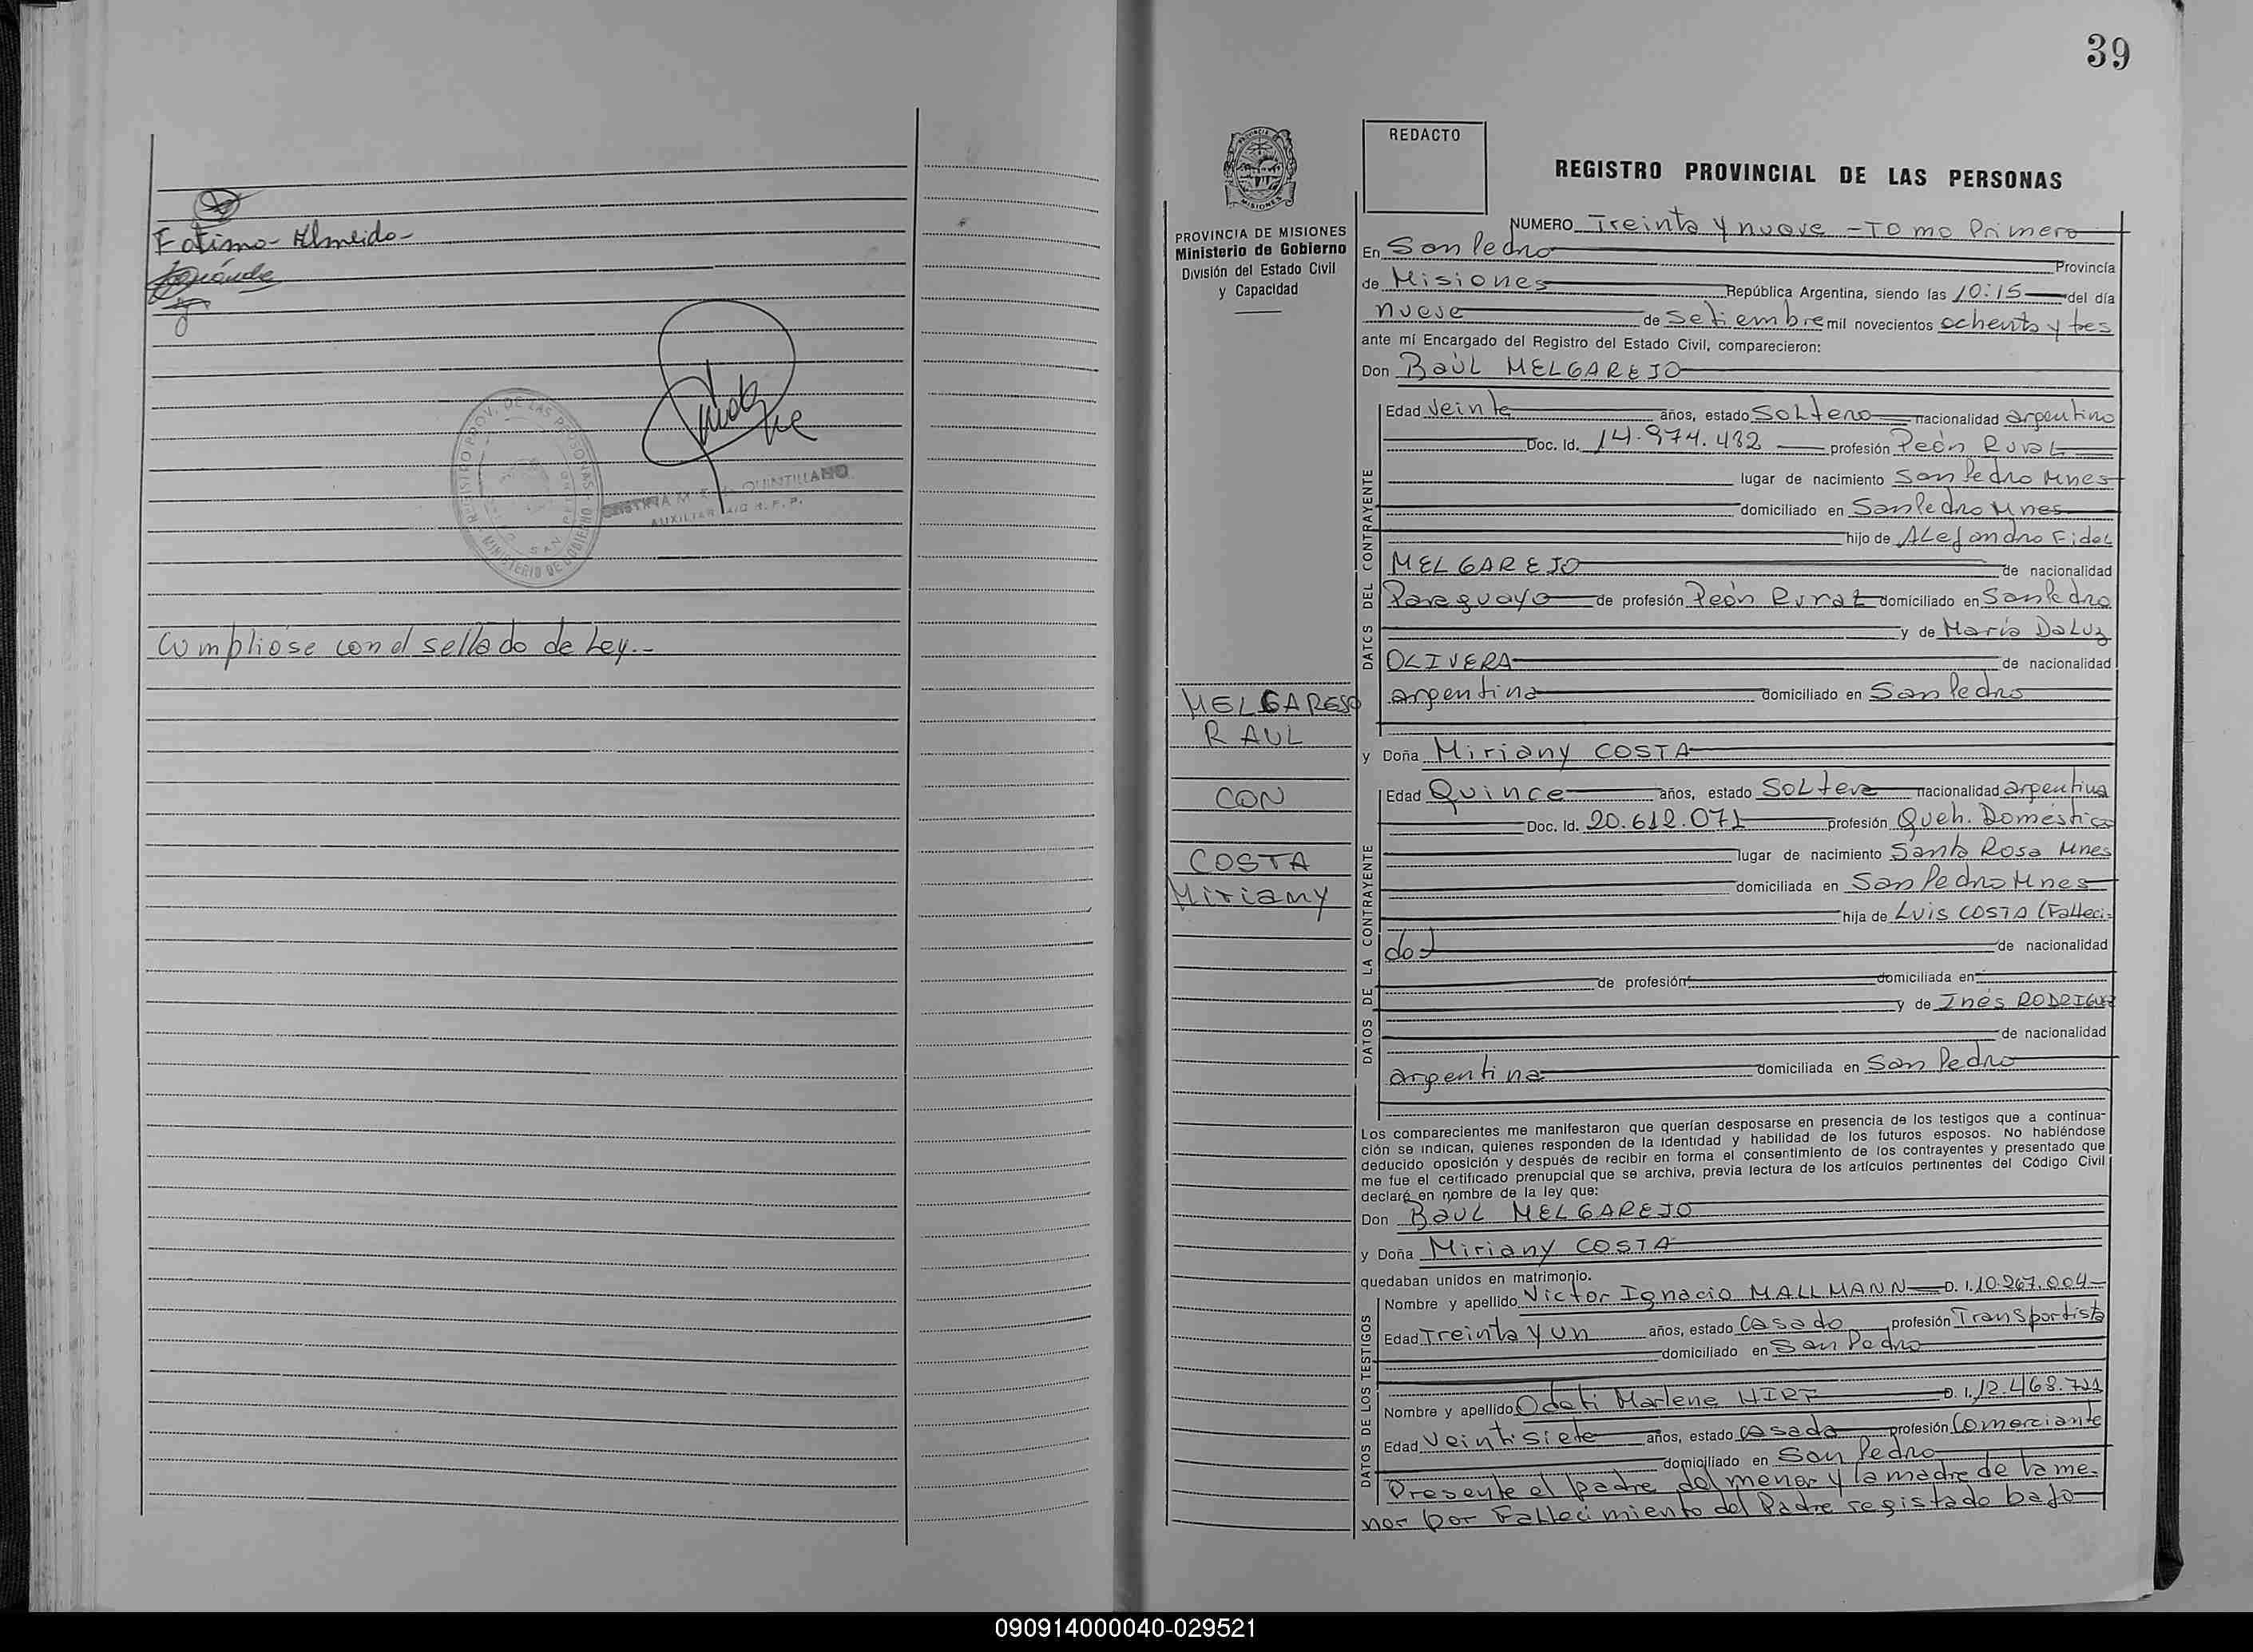 Fatima Almeida
REGISTRO PROV. DE LAS PERSONAS
MINISTERIO DE GOBIERNO
SAN PEDRO
QUINTILLANO
AUXILIAR
Cumpliose con el sellado de Ley.-
39
PROVINCIA DE MISIONES
Ministerio de Gobierno
División del Estado Civil
y Capacidad
MELGAREJO
RAUL
CON
COSTA
Miriany
REDACTO
REGISTRO PROVINCIAL DE LAS PERSONAS
NUMERO Treinta y nueve - TOmo Primero
En San Pedro Provincia
de Misiones República Argentina, siendo las 10:15 del día
nueve de Setiembre mil novecientos ochenta y tres
ante mí Encargado del Registro del Estado Civil, comparecieron:
Don Raúl MELGAREJO
DATOS DEL CONTRAYENTE
Edad Veinte años, estado Soltero nacionalidad argentino
Doc. Id. 14.974.432 profesión Peón Rural
lugar de nacimiento San Pedro Mnes
domiciliado en San Pedro Mnes
hijo de Alejandro Fidel
MELGAREJO de nacionalidad
Paraguayo de profesión Peón Rural domiciliado en San Pedro
y de María Da Luz
OLIVERA de nacionalidad
argentina domiciliado en San Pedro
y Doña Miriany COSTA
DATOS DE LA CONTRAYENTE
Edad Quince años, estado Soltera nacionalidad argentina
Doc. Id. 20.612.071 profesión Queh. Domésticos
lugar de nacimiento Santa Rosa Mnes
domiciliada en San Pedro Mnes
hija de Luis COSTA (Falleci-
do) de nacionalidad
de profesión domiciliada en
y de Inés RODRIGUEZ
de nacionalidad
argentina domiciliada en San Pedro
Los comparecientes me manifestaron que querían desposarse en presencia de los testigos que a continua-
ción se indican, quienes responden de la identidad y habilidad de los futuros esposos. No habiéndose
deducido oposición y después de recibir en forma el consentimiento de los contrayentes y presentado que
me fue el certificado prenupcial que se archiva, previa lectura de los artículos pertinentes del Código Civil
declaré en nombre de la ley que:
Don Raul MELGAREJO
y Doña Miriany COSTA
quedaban unidos en matrimonio.
DATOS DE LOS TESTIGOS
Nombre y apellido Victor Ignacio MALLMANN D. I. 10.267.004
Edad Treinta y un años, estado Casado profesión Transportista
domiciliado en San Pedro
Nombre y apellido Odeti Marlene HIRT D. I. 12.468.721
Edad Veintisiete años, estado casada profesión Comerciante
domiciliado en San Pedro
Presente el padre del menor y la madre de la me-
nor por Fallecimiento del Padre registado bajo
090914000040-029521